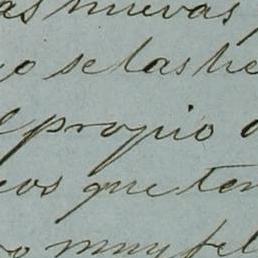 as nuevas
o se las he
l propio
eos que ten
o muy fel